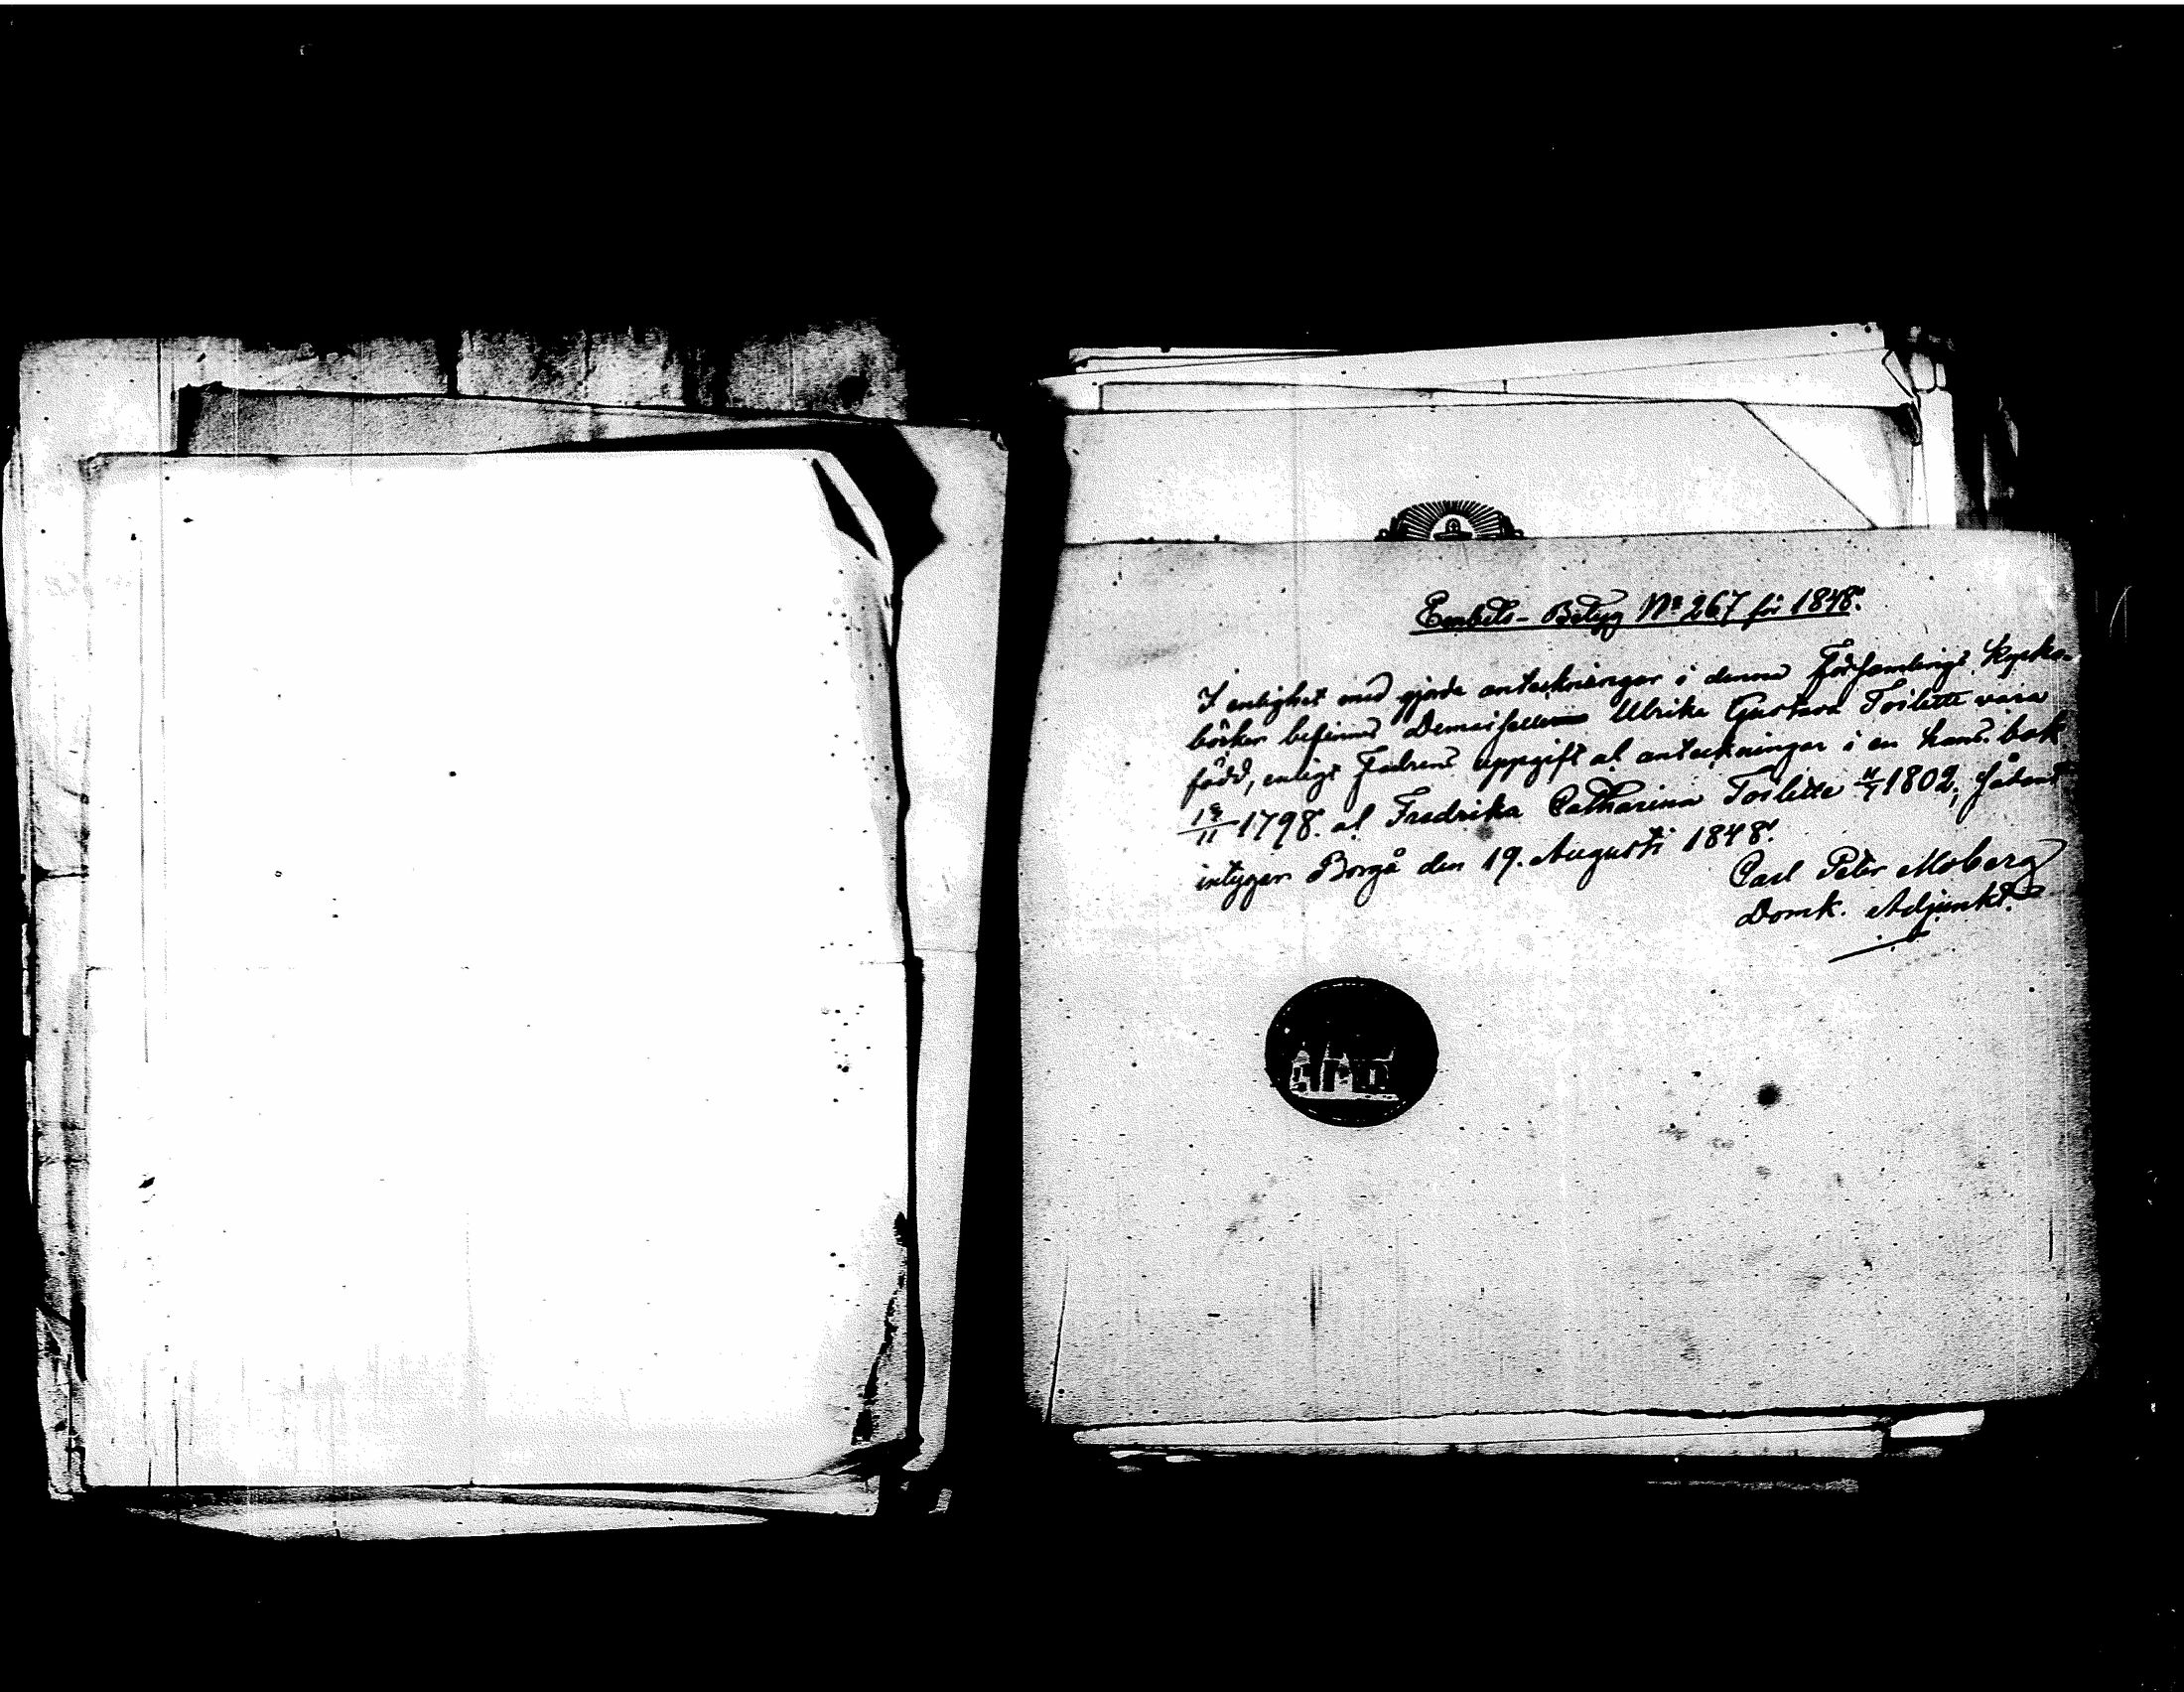 Embets-Betyg No 267 för 1848.
I enlighet med gjorda anteckningar i denna Församlings Kyrko-
böcker befinnes Demoisellerne Ulrika Gustava Toilette vara
född, enligt Fadrens uppgift at anteckningar i en hans bok
1798. at Fredrika Catharina Toilette 1802; sådant
intygar Borgå den 19. Augusti 1848.
Carl Peter Moberg
Domk. Adjunkt.